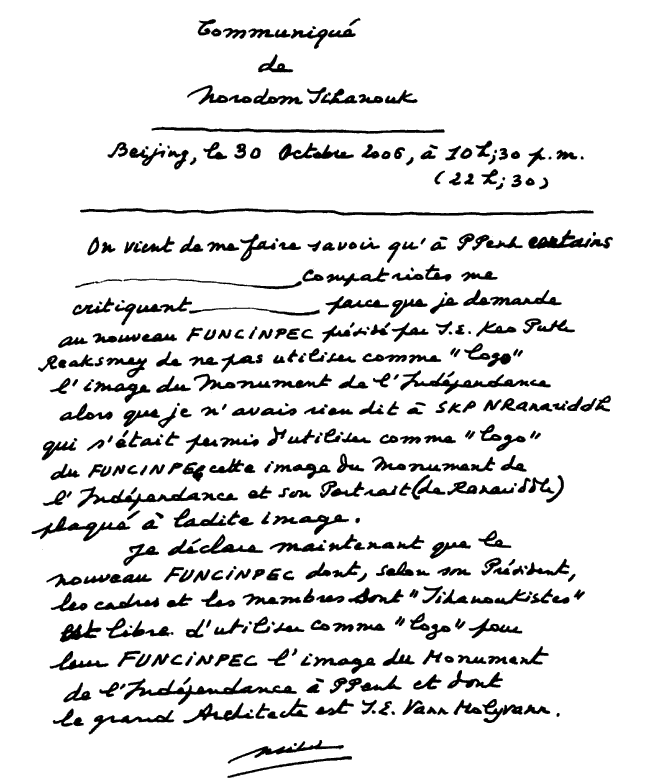 Communiqué
de
Norodom Sihanouk
Beijing, le 30 Octobre 2006, à 10h;30 p.m.
(22h;30)
On vient de me faire savoir qu'à PPenh certains
compatriotes me
critiquent parce que je demande
au nouveau FUNCINPEC présidé par S.E. Keo Puth
Reaksmey de ne pas utiliser comme "logo"
l'image du Monument de l'Indépendance
alors que je n'avais rien dit à SKP NRanariddh
qui s'était permis d'utiliser comme "logo"
du FUNCINPEC cette image du Monument de
l'Indépendance et son Portrait (de Ranariddh)
plaqué à ladite image.
Je déclare maintenant que le
nouveau FUNCINPEC dont, selon son Président,
les cadres et les membres sont "Sihanoukistes"
est libre d'utiliser comme "logo" pour
leur FUNCINPEC l'image du Monument
de l'Indépendance à PPenh et dont
le grand Architecte est S.E. Vann Molyvann.